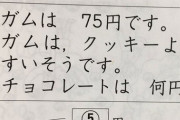 ガムは 75円です。
ガムは，クッキーよ
すいそうです。
チョコレートは 何円
⑤